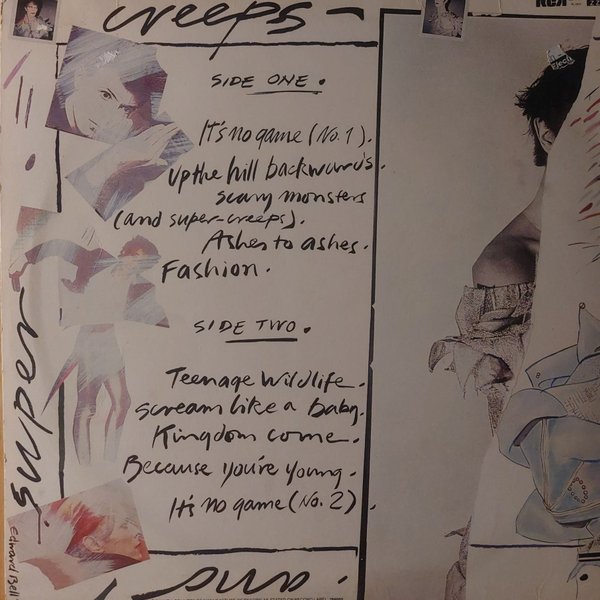 creeps
RCA
SIDE ONE.
It's no game (No. 1).
Up the hill backwards.
scary monsters
(and super-creeps).
Ashes to ashes.
Fashion.
SIDE TWO.
Teenage Wildlife.
Scream like a baby.
Kingdom come.
Because you're young.
It's no game (No. 2).
super
Edward Bell
and